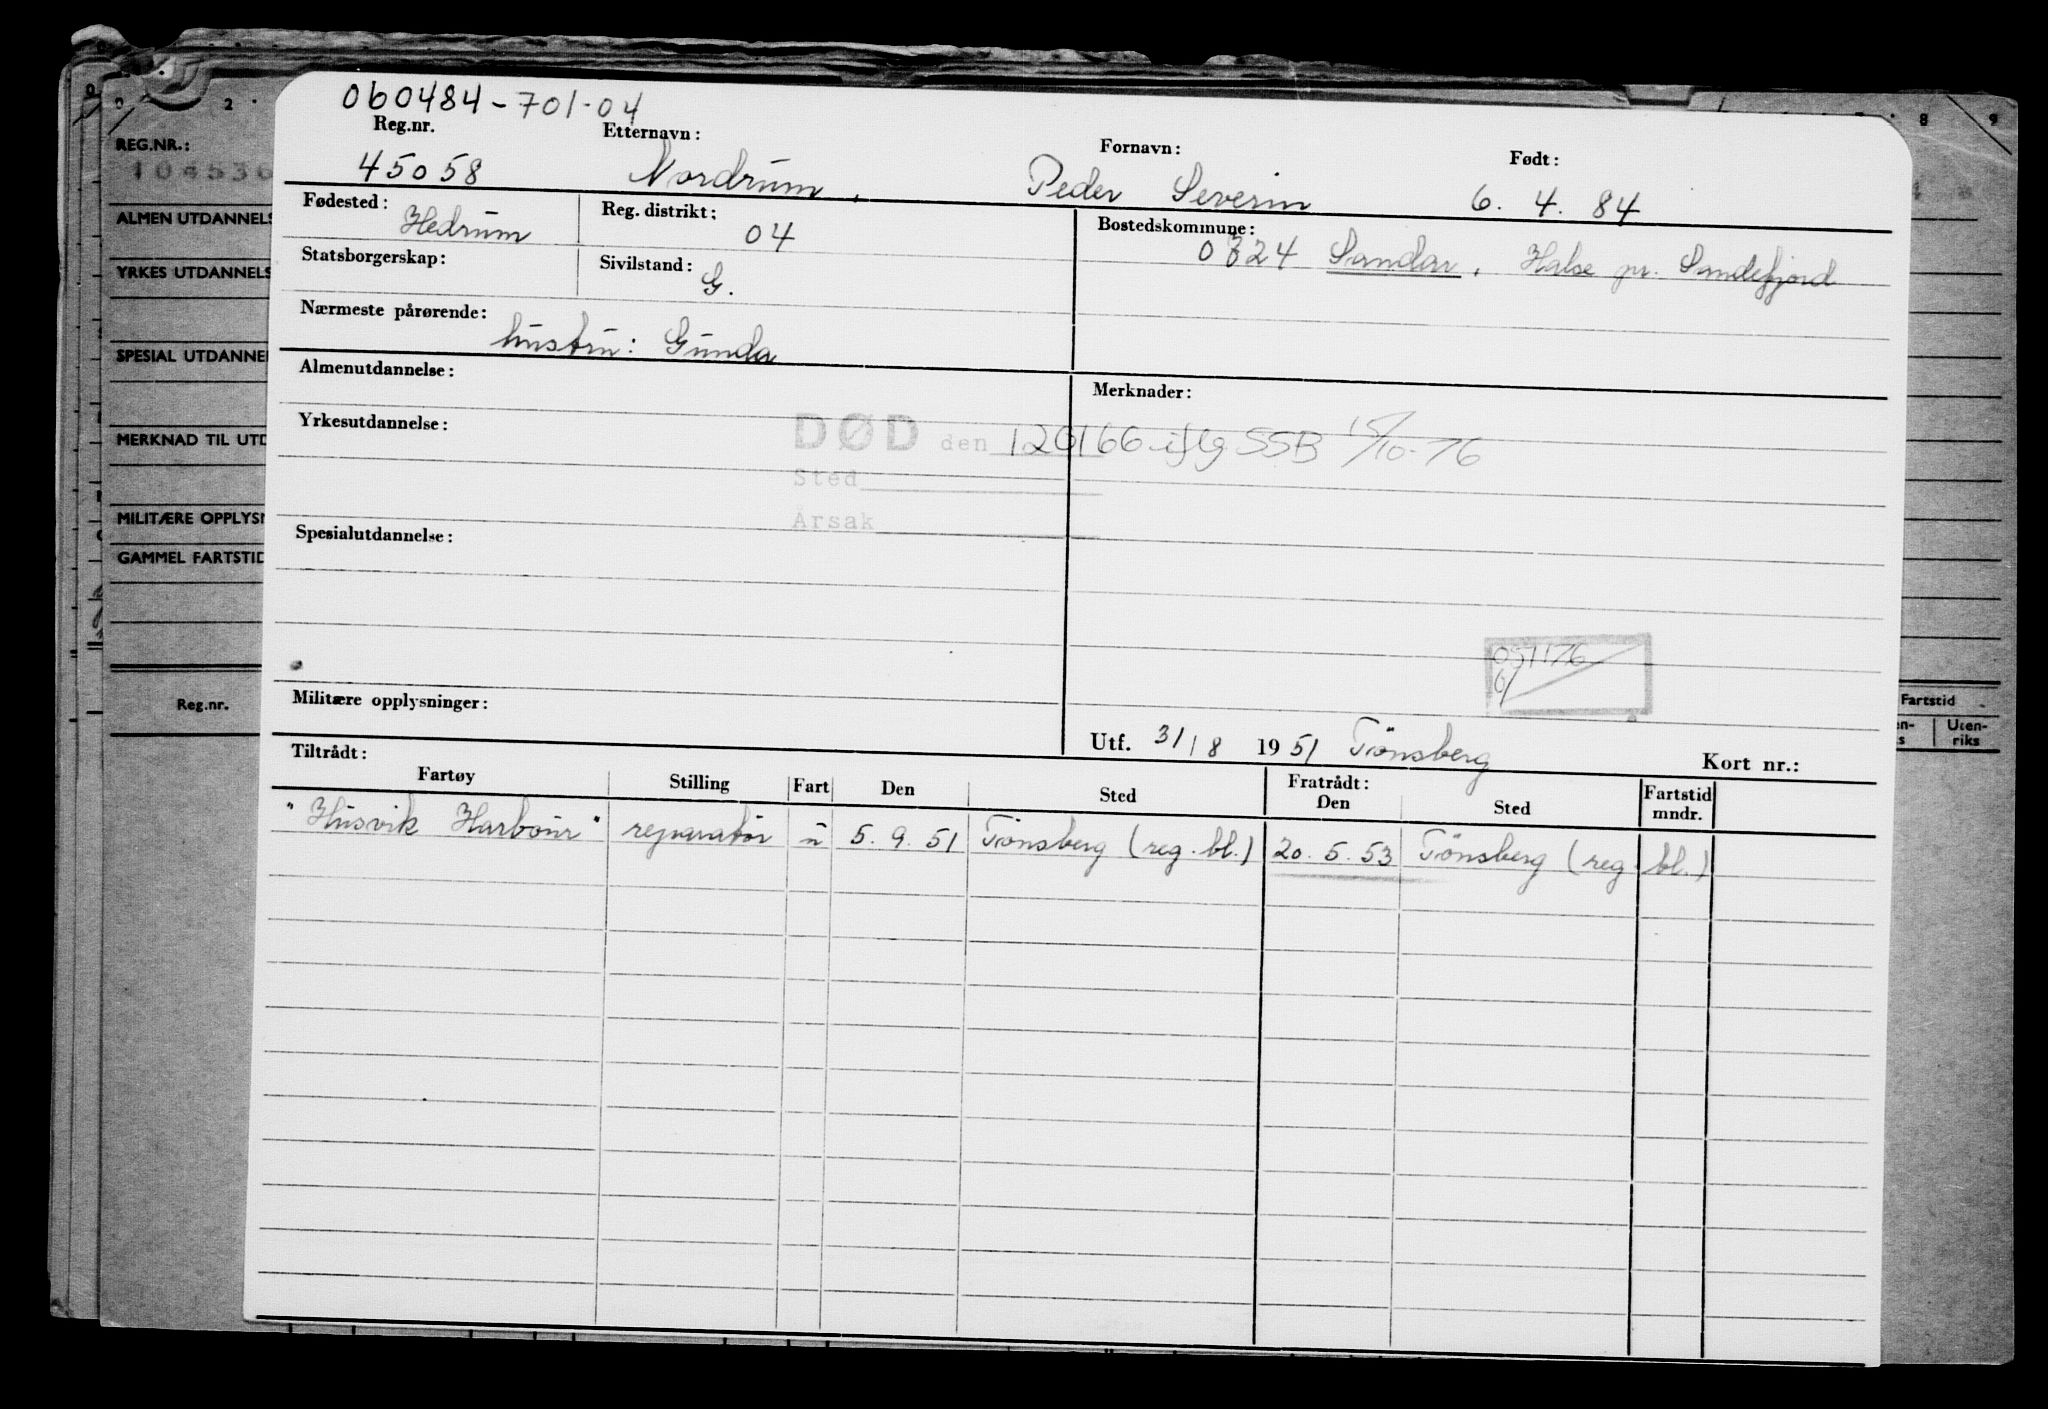 060484-701-04
Reg.nr. Etternavn: Fornavn: Født:
45058 Nordrum, Peder Severin 6. 4. 84
Fødested: Hedrum Reg. distrikt: 04 Bostedskommune: 0724 Sandar, Halse pr. Sandefjord
Statsborgerskap: Sivilstand: G.
Nærmeste pårørende: hustru: Gunda
Almenutdannelse: Merknader:
Yrkesutdannelse: DØD den 120166 iflg SSB 15/10-76
Sted
Årsak
Spesialutdannelse:
051176
Militære opplysninger:
Utf. 31/8 1951 Tönsberg Kort nr.:
Tiltrådt: Fratrådt: Fartstid
Fartøy Stilling Fart Den Sted Den Sted mndr.
"Husvik Harbour" reparatør u 5. 9. 51 Tönsberg (reg. bl.) 20. 5. 53 Tönsberg (reg. bl.)
0 0 2 7 8 9
REG.NR.:
104536
ALMEN UTDANNELS
YRKES UTDANNELS
SPESIAL UTDANNEL
MERKNAD TIL UTD
MILITÆRE OPPLYSN
GAMMEL FARTSTID
Reg.nr. Fartstid
en-ks Uten-riks